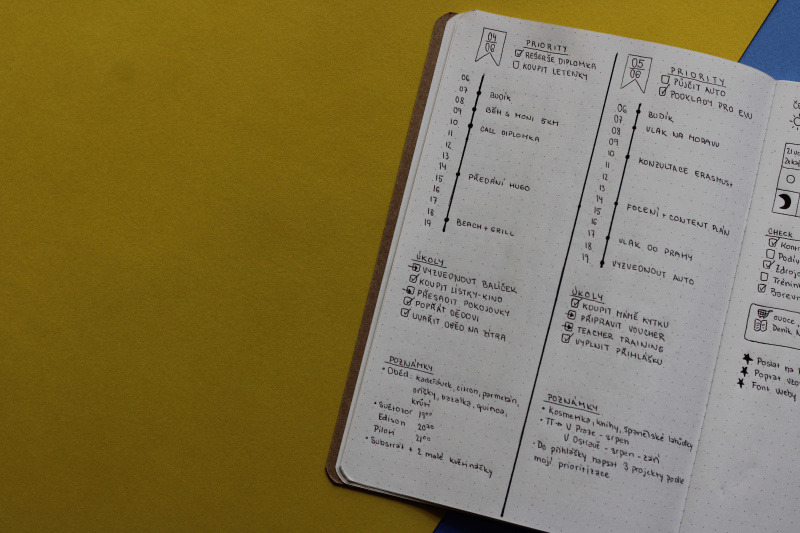 04
08
PRIORITY
REŠERŠE DIPLOMKA
KOUPIT LETENKY
06
07
08
09
10
11
12
13
14
15
16
17
18
19
BUDÍK
BĚH S MONI 5KM
CALL DIPLOMKA
PŘEDÁNÍ HUGO
BEACH + GRILL
ÚKOLY
VYZVEDNOUT BALÍČEK
KOUPIT LÍSTKY-KINO
PŘESADIT POKOJOVKY
POPŘÁT DĚDOVI
UVAŘIT OBĚD NA ZÍTRA
POZNÁMKY
• Oběd: kadeřávek, citron, parmetán,
oříšky, bazalka, quinoa,
krůtí
• Světozor 19⁰⁰
Edison 20³⁰
Piloti 21⁰⁰
• Substrát + 2 malé květináčky
05
08
PRIORITY
PŮJČIT AUTO
PODKLADY PRO EVU
06
07
08
09
10
11
12
13
14
15
16
17
18
19
BUDÍK
VLAK NA MORAVU
KONZULTACE ERASMUS+
FOCENÍ + CONTENT PLÁN
VLAK DO PRAHY
VYZVEDNOUT AUTO
ÚKOLY
KOUPIT MÁMĚ KYTKU
PŘIPRAVIT VOUCHER
TEACHER TRAINING
VYPLNIT PŘIHLÁŠKU
POZNÁMKY
• Kosmetika, knihy, španělské lahůdky
• TT → V Praze - srpen
V Ostravě - srpen - září
• Do přihlášky napsat 3 projekty podle
mojí prioritizace
CHECK
ovoce
Deník
Poslat na
Font weby